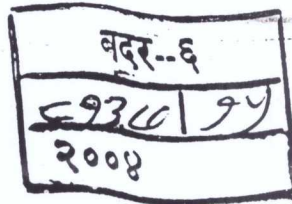 बदर--६
८९३८८ | १५
२००४